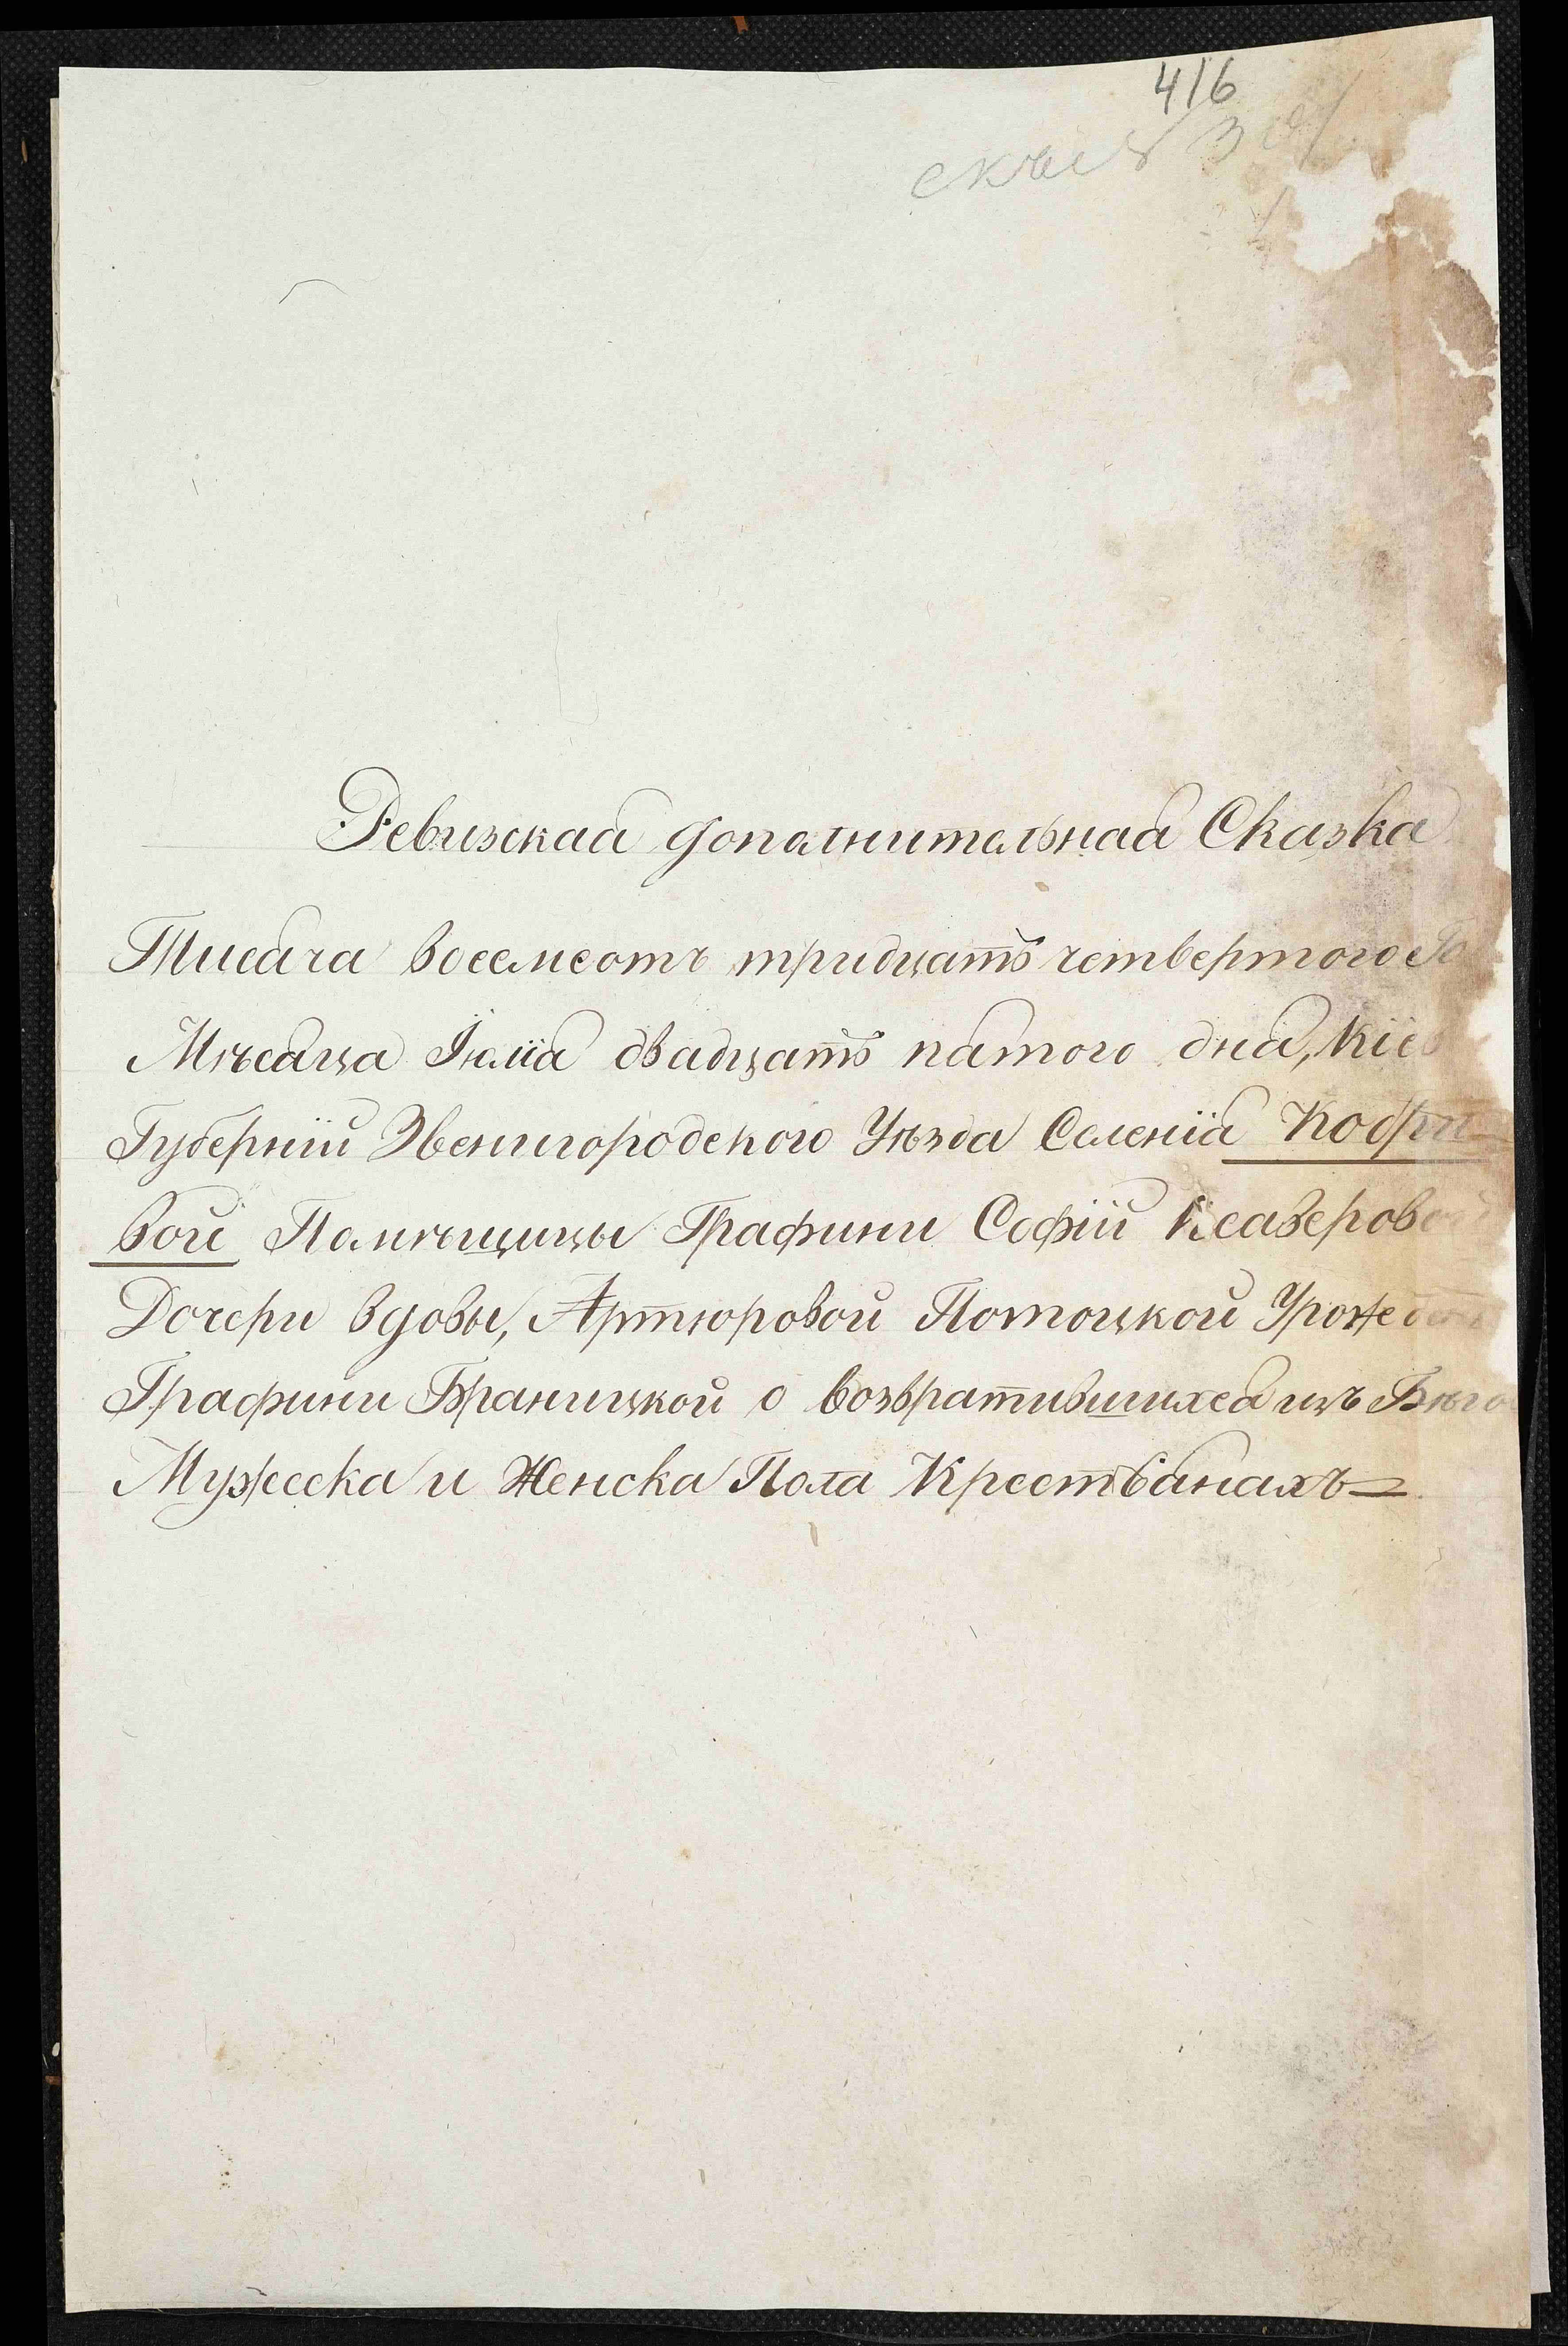 416
Ревизская дополнительная Сказка
Тисяча восемсотъ тридцать четвертого
Мѣсяца Іюлїя двадцать пятого дня, Кіев
Губернїи Звенигородского Уѣзда Селенїя Кобри
вой Помѣщицы Графини Софїи Ксаверовой
Дочери вдовы, Артюровой Потоцкой Урожед
Графини Браницкой о возвратившихся изъ Бѣго
Мужеска и Женска Пола Крестьянахъ